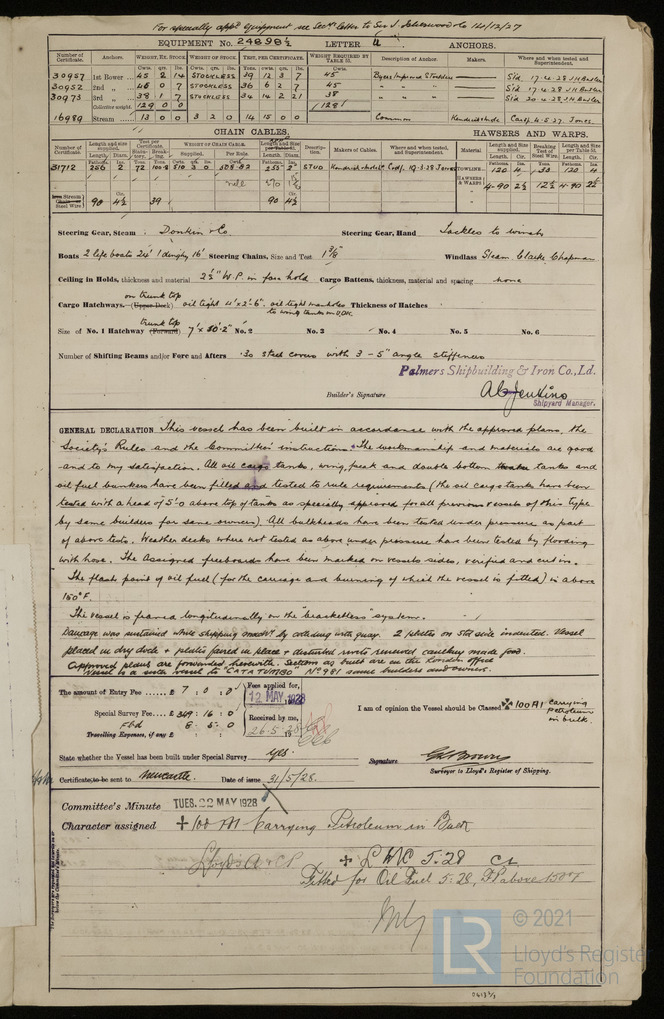 For specially appd equipment see Secy's letter to Sir J. Isherwood & Co 14/12/27
EQUIPMENT No. 24898½ LETTER U ANCHORS.
Number of Certificate. Anchors. WEIGHT, EX. STOCK. WEIGHT OF STOCK. TEST, PER CERTIFICATE. WEIGHT REQUIRED BY TABLE 53. Description of Anchor. Makers. Where and when tested and Superintendent.
30957 1st Bower 45 2 14 STOCKLESS 39 12 3 7 45 Byers Improved Stockless Sld 17.4.28 J H Butler
30952 2nd „ 45 0 7 STOCKLESS 36 6 2 7 45 " " " Sld 17.4.28 J H Butler
30973 3rd „ 38 1 7 STOCKLESS 34 14 2 21 38 " " " Sld 20.4.28 J H Butler
Collective weight 129 0 0 128
16989 Stream 13 0 0 3 2 0 14 15 0 0 Common Cardf. 4.5.27. Jones.
CHAIN CABLES. HAWSERS AND WARPS.
Number of Certificate. Length and size supplied. Test per Certificate. WEIGHT OF CHAIN CABLE. Description. Makers of Cables. Where and tested, and Superintendent. Material Length and Size supplied. Breaking Test of Steel Wire. Length and Size per Table 53.
31712 256 2 72 510 3 0 STUD Cardf. 19.3.28 Jones TOWLINE 120 4 33 120 4
HAWSERS & WARPS 4-90 2½ 12½ 4-90 2½
Steel Wire 90 4½ 39 90 4½
Steering Gear, Steam Donkin & Co. Steering Gear, Hand Tackles to winch
Boats 2 life boats 24' 1 dinghy 16' Steering Chains, Size and Test 1 3/8 Windlass Steam. Clarke Chapman
Ceiling in Holds, thickness and material 2½" W.P. in fore hold Cargo Battens, thickness, material and spacing none
on trunk top
Cargo Hatchways. (Upper Deck) oil tight 4'x2'-6". oil tight manholes Thickness of Hatches
to wing tanks on U.Dk.
trunk top
Size of No. 1 Hatchway (Forward) 7' x 10'-2" No. 2 No. 3 No. 4 No. 5 No. 6
Number of Shifting Beams and/or Fore and Afters .30 steel covers with 3 - 5" angle stiffeners
Palmers Shipbuilding & Iron Co., Ld.
Builder's Signature
Shipyard Manager.
GENERAL DECLARATION This vessel has been built in accordance with the approved plans, the
Society's Rules and the Committee's instructions. The workmanship and materials are good
and to my satisfaction. All oil cargo tanks, wing, peak and double bottom tanks and
oil fuel bunkers have been filled and tested to rule requirements (the oil cargo tanks have been
tested with a head of 5'-0 above top of tanks as specially approved for all previous vessels of this type
by same builders for same owners). All bulkheads have been tested under pressure as part
of above tests. Weather decks where not tested as above under pressure have been tested by flooding
with hose. The Assigned freeboards have been marked on vessels sides, verified and cut in.
The flash point of oil fuel (for the carriage and burning of which the vessel is fitted) is above
150° F.
The vessel is framed longitudinally on the "bracketless" system.
Damage was sustained while shipping by colliding with quay. 2 plates on stbd side indented. Vessel
placed in dry dock & plates faired in place & disturbed rivets renewed caulking made good.
Approved plans are forwarded herewith. Sections as built are in the London office
Vessel is a sister vessel to "CATATUMBO" No 981 same builders and owners.
The amount of Entry Fee £ 7 : 0 : 0 Fees applied for, 12 MAY 1928
Special Survey Fee £ 349 : 16 : 0 Received by me,
Fbd 8 . 5 . 0 26.5.28
Travelling Expenses, if any £
I am of opinion the Vessel should be Classed ✠ 100 A1 carrying petroleum in bulk.
State whether the Vessel has been built under Special Survey Yes. Signature
Surveyor to Lloyd's Register of Shipping.
Certificate to be sent to Newcastle. Date of issue 31/5/28.
Committee's Minute TUES. 22 MAY 1928
Character assigned ✠ 100 A1 Carrying Petroleum in Bulk
Lloyd's A & CP ✠ LMC 5.28 CL
Fitted for Oil Fuel 5.28, F.P. above 150°F
LR
© 2021
Lloyd's Register
Foundation